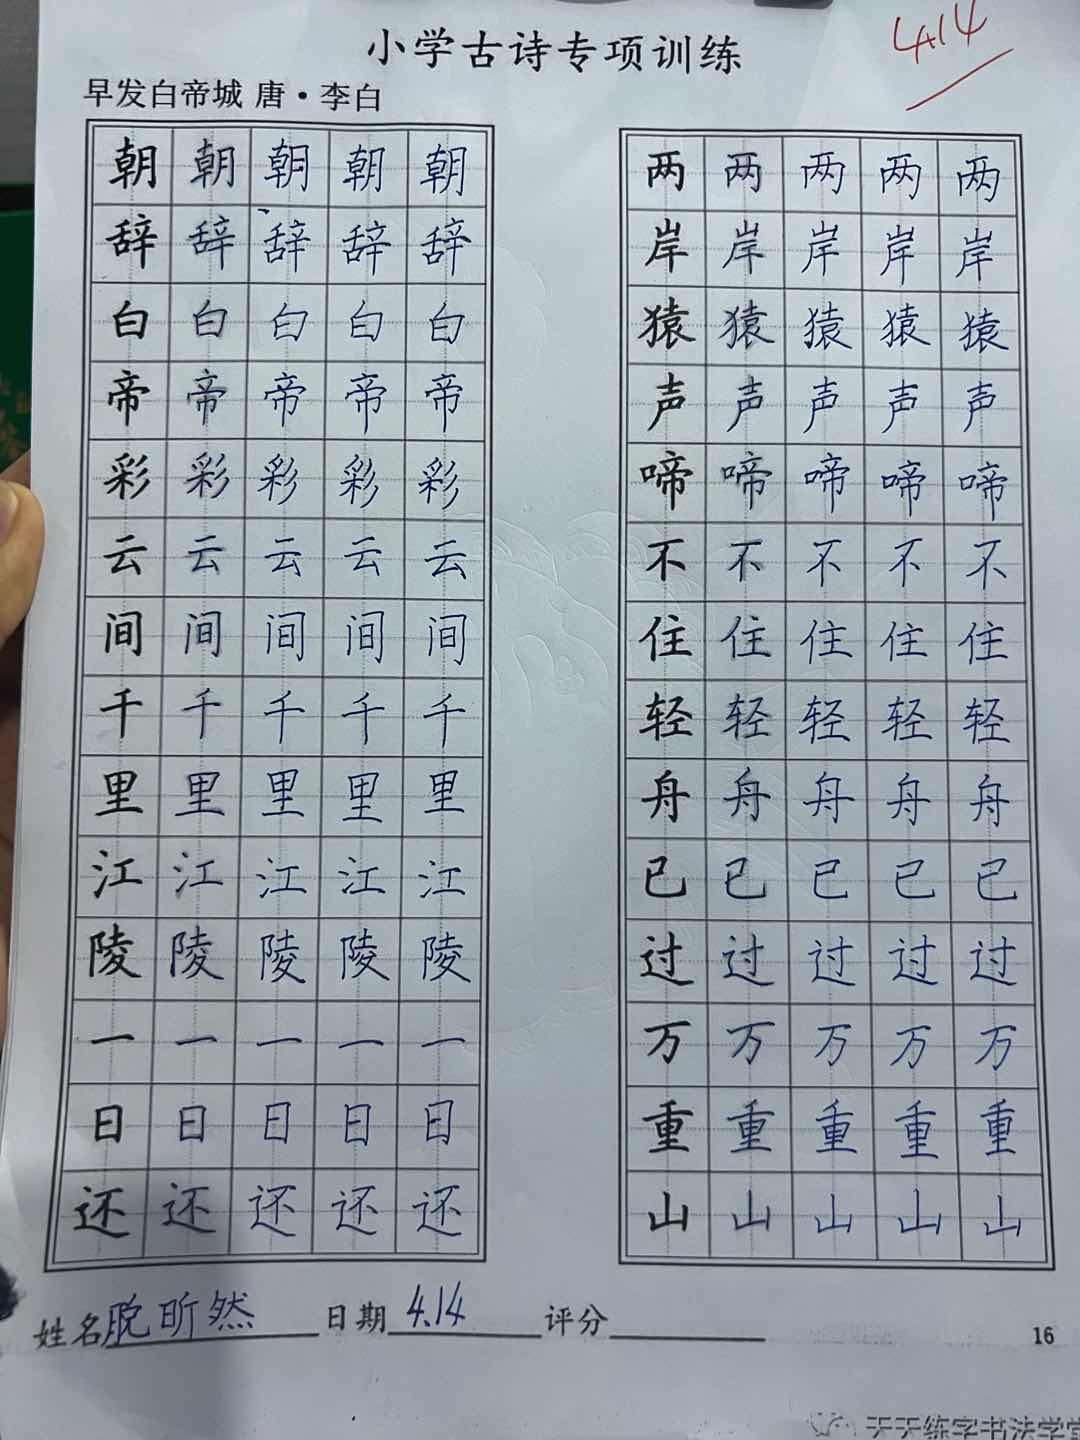 4.14
小学古诗专项训练
早发白帝城 唐·李白
朝朝朝朝朝 两两两两两
辞辞辞辞辞 岸岸岸岸岸
白白白白白 猿猿猿猿猿
帝帝帝帝帝 声声声声声
彩彩彩彩彩 啼啼啼啼啼
云云云云云 不不不不不
间间间间间 住住住住住
千千千千千 轻轻轻轻轻
里里里里里 舟舟舟舟舟
江江江江江 已已已已已
陵陵陵陵陵 过过过过过
一一一一一 万万万万万
日日日日日 重重重重重
还还还还还 山山山山山
姓名 昕然 日期 4.14 评分
16
天天练字书法学堂